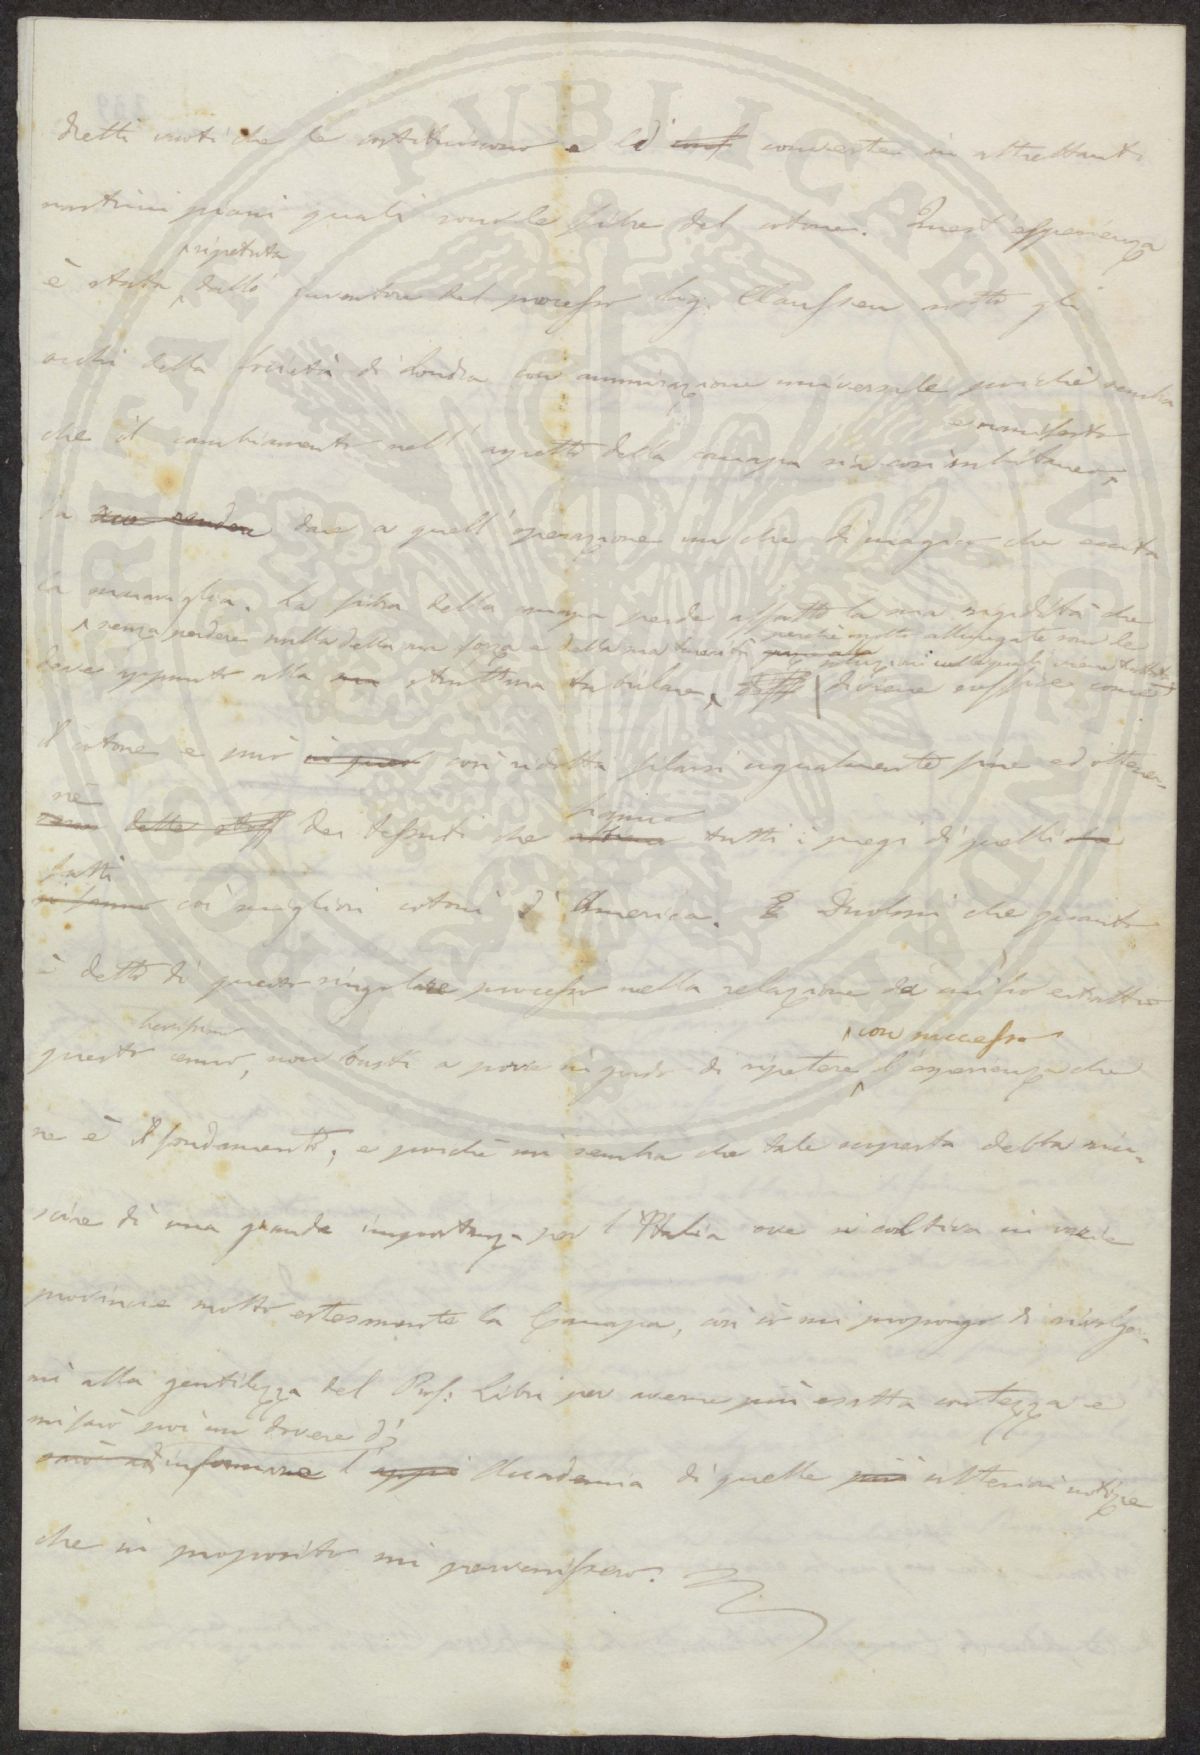 dretti vuoti che le costituiscono e li converte in altrettanti
nastrini piani quali sono le fibre del cotone. Quest'esperienza
ripetuta
è stata dallo inventore del processo Sig. Claussen sotto gli
occhi della Società di Londra con ammirazione universale poichè sembra
e manifesto
che il cambiamento nell'aspetto della canapa sia così subitaneo
da dare a quell'operazione un che di magico che eccita
la maraviglia. La fibra della canapa perde affatto la sua rigidità che
senza perdere nulla della sua forza e della sua tenacità perchè molto allungate son le
soluzioni nelle quali viene trattata
deve appunto alla struttura tubulare, diviene soffice come
il cotone e può così ridotta filarsi ugualmente fine ed ottener-
ne dei tessuti che tutti i pregi di quelli
fatti
coi migliori cotoni d'America. Duolmi che quanto
è detto di questo singolare processo nella relazione da cui ho estratto
brevissimo con successo
questo cenno, non basti a porre in grado di ripetere l'esperienza che
ne è il fondamento; e poichè mi sembra che tale scoperta debba riu-
scire di una grande importanza per l'Italia ove si coltiva in varie
provincie molto estesamente la Canapa, così io mi propongo di rivolger-
mi alla gentilezza del Prof: Libri per averne più esatta contezza e
mi farò poi un dovere di
informare l'Accademia di quelle ulteriori notizie
che in proposito mi pervenissero.